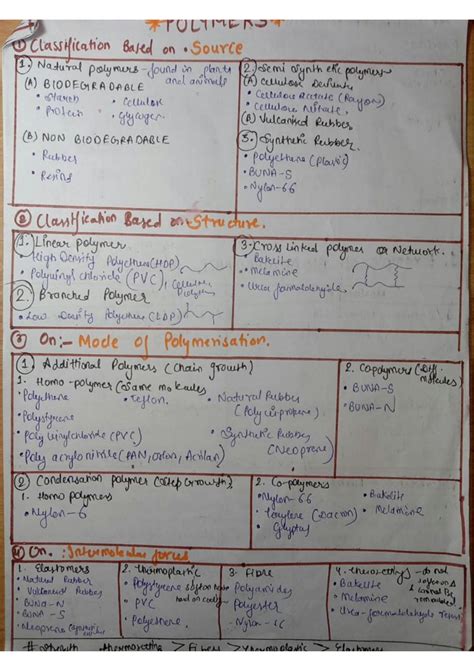 *POLYMERS*
① Classification Based on • Source
1. Natural polymers - found in plants and animals
(A) BIODEGRADABLE
• Starch • Cellulose
• Protein • Glycogen
(B) NON BIODEGRADABLE
• Rubber
• Resins
2. Semi Synthetic polymers
(A) Cellulose Derivate
• Cellulose acetate (Rayon)
• Cellulose Nitrate
(B) Vulcanised Rubber
3. Synthetic Rubber
• Polyethene (Plastic)
• BUNA-S
• Nylon-66
② Classification Based on Structure.
1. Linear polymer
High Density Polyethene (HDP)
• Polyvinyl chloride (PVC),
2. Branched Polymer
• Low Density Polyethene (LDP)
3. Cross Linked polymer or Network.
• Bakelite
• Melamine
• Urea formaldehyde
③ On:- Mode of Polymerisation.
① Additional Polymers (Chain growth)
1. Homo-polymer (Same molecules
• Polythene • Teflon.
• Polystyrene
• Poly vinylchloride (PVC)
• Poly acrylonitrile (PAN, orlon, Acrilan)
• Natural Rubber
(Poly isoprene)
• Synthetic Rubber
(Neoprene)
2. Copolymers (Diff. molecules)
• BUNA-S
• BUNA-N
② Condensation polymer (Step Growth)
1. Homo polymers
• Nylon-6
2. Co-polymers
• Nylon-66 • Bakelite
• Terylene (Dacron) • Melamine
• Glyptal
④ On. : Intermolecular forces
1. Elastomers
Natural Rubber
• Vulcanised Rubber
• BUNA-N
• BUNA-S
• Neoprene
2. Thermoplastic
• Polystyrene
• PVC
• Polythene
3. Fibre
• Polyamides
• Polyester
• Nylon-66
4. Thermosetting - do not
• Bakelite
• Melamine
• Urea-formaldehyde
# Strength thermosetting > Fibers > Thermoplastic > Elastomers